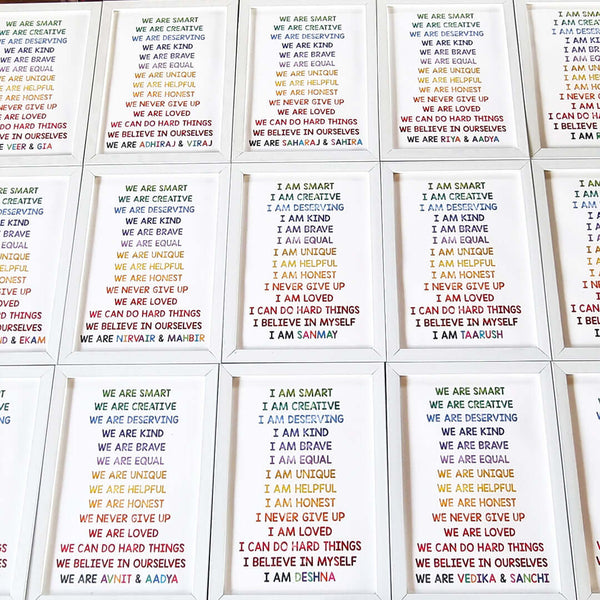 WE ARE SMART
ARE CREATIVE
DESERVING
WE ARE KIND
WE ARE BRAVE
WE ARE EQUAL
ARE UNIQUE
ARE HELPFUL
ARE HONEST
GIVE UP
ARE LOVED
HARD THINGS
IN OURSELVES
VEER & GIA
WE ARE SMART
WE ARE CREATIVE
WE ARE DESERVING
WE ARE KIND
WE ARE BRAVE
WE ARE EQUAL
WE ARE UNIQUE
WE ARE HELPFUL
WE ARE HONEST
WE NEVER GIVE UP
WE ARE LOVED
WE CAN DO HARD THINGS
WE BELIEVE IN OURSELVES
WE ARE ADHIRAJ & VIRAJ
WE ARE SMART
WE ARE CREATIVE
WE ARE DESERVING
WE ARE KIND
WE ARE BRAVE
WE ARE EQUAL
WE ARE UNIQUE
WE ARE HELPFUL
WE ARE HONEST
WE NEVER GIVE UP
WE ARE LOVED
WE CAN DO HARD THINGS
WE BELIEVE IN OURSELVES
WE ARE SAHARAJ & SAHIRA
WE ARE SMART
WE ARE CREATIVE
WE ARE DESERVING
WE ARE KIND
WE ARE BRAVE
WE ARE EQUAL
WE ARE UNIQUE
WE ARE HELPFUL
WE ARE HONEST
WE NEVER GIVE UP
WE ARE LOVED
WE CAN DO HARD THINGS
WE BELIEVE IN OURSELVES
WE ARE RIYA & AADYA
I AM SMART
I AM CREATIVE
I AM DESERVING
I AM KIND
I AM BRAVE
I AM EQUAL
I AM UNIQUE
I AM HELPFUL
I AM HONEST
I NEVER GIVE
I AM LOVED
I CAN DO HARD
I BELIEVE IN
I AM
SMART
CREATIVE
KIND
BRAVE
EQUAL
UNIQUE
HELPFUL
HONEST
GIVE UP
LOVED
THINGS
OURSELVES
& EKAM
WE ARE SMART
WE ARE CREATIVE
WE ARE DESERVING
WE ARE KIND
WE ARE BRAVE
WE ARE EQUAL
WE ARE UNIQUE
WE ARE HELPFUL
WE ARE HONEST
WE NEVER GIVE UP
WE ARE LOVED
WE CAN DO HARD THINGS
WE BELIEVE IN OURSELVES
WE ARE NIRVAIR & MAHBIR
I AM SMART
I AM CREATIVE
I AM DESERVING
I AM KIND
I AM BRAVE
I AM EQUAL
I AM UNIQUE
I AM HELPFUL
I AM HONEST
I NEVER GIVE UP
I AM LOVED
I CAN DO HARD THINGS
I BELIEVE IN MYSELF
I AM SANMAY
I AM SMART
I AM CREATIVE
I AM DESERVING
I AM KIND
I AM BRAVE
I AM EQUAL
I AM UNIQUE
I AM HELPFUL
I AM HONEST
I NEVER GIVE UP
I AM LOVED
I CAN DO HARD THINGS
I BELIEVE IN MYSELF
I AM TAARUSH
WE ARE SMART
WE ARE CREATIVE
WE ARE DESERVING
WE ARE KIND
WE ARE BRAVE
WE ARE EQUAL
WE ARE UNIQUE
WE ARE HELPFUL
WE ARE HONEST
WE NEVER GIVE UP
WE ARE LOVED
WE CAN DO HARD THINGS
WE BELIEVE IN OURSELVES
WE ARE AVNIT & AADYA
I AM SMART
I AM CREATIVE
I AM DESERVING
I AM KIND
I AM BRAVE
I AM EQUAL
I AM UNIQUE
I AM HELPFUL
I AM HONEST
I NEVER GIVE UP
I AM LOVED
I CAN DO HARD THINGS
I BELIEVE IN MYSELF
I AM DESHNA
WE ARE SMART
WE ARE CREATIVE
WE ARE DESERVING
WE ARE KIND
WE ARE BRAVE
WE ARE EQUAL
WE ARE UNIQUE
WE ARE HELPFUL
WE ARE HONEST
WE NEVER GIVE UP
WE ARE LOVED
WE CAN DO HARD THINGS
WE BELIEVE IN OURSELVES
WE ARE VEDIKA & SANCHI